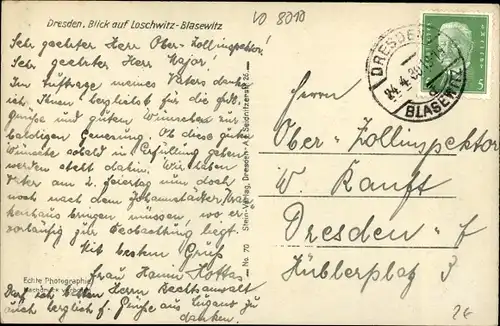 Dresden. Blick auf Loschwitz-Blasewitz
VO 8010
Sehr geehrter Herr Ober-Zollinspektor!
Sehr geehrter Herr Major!
Im Auftrage meines Vaters danke
ich Ihnen herzlichst für die
grüsse und guten Wünsche zur
baldigen Genesung. Ob diese guten
Wünsche sobald in Erfüllung gehen
werden steht dahin. Wir haben
Vater am 2. Feiertag nun doch
noch nach dem Johannstädter Kran
kenhaus bringen müssen, wo er
vorläufig zur Beobachtung liegt.
Mit bestem Gruß
Frau Hanni
Darf ich bitten Herrn Rechtsanwalt
auch herzlich f. Grüße aus Lugano zu
danken.
Echte Photographie
No. 70 Stein-Verlag, Dresden-A., Seidnitzerstr. 26
DRESDEN
BLASEWITZ
5
Herrn
Ober-Zollinspektor
W. Kauft
Dresden-
Hüblerplatz 3